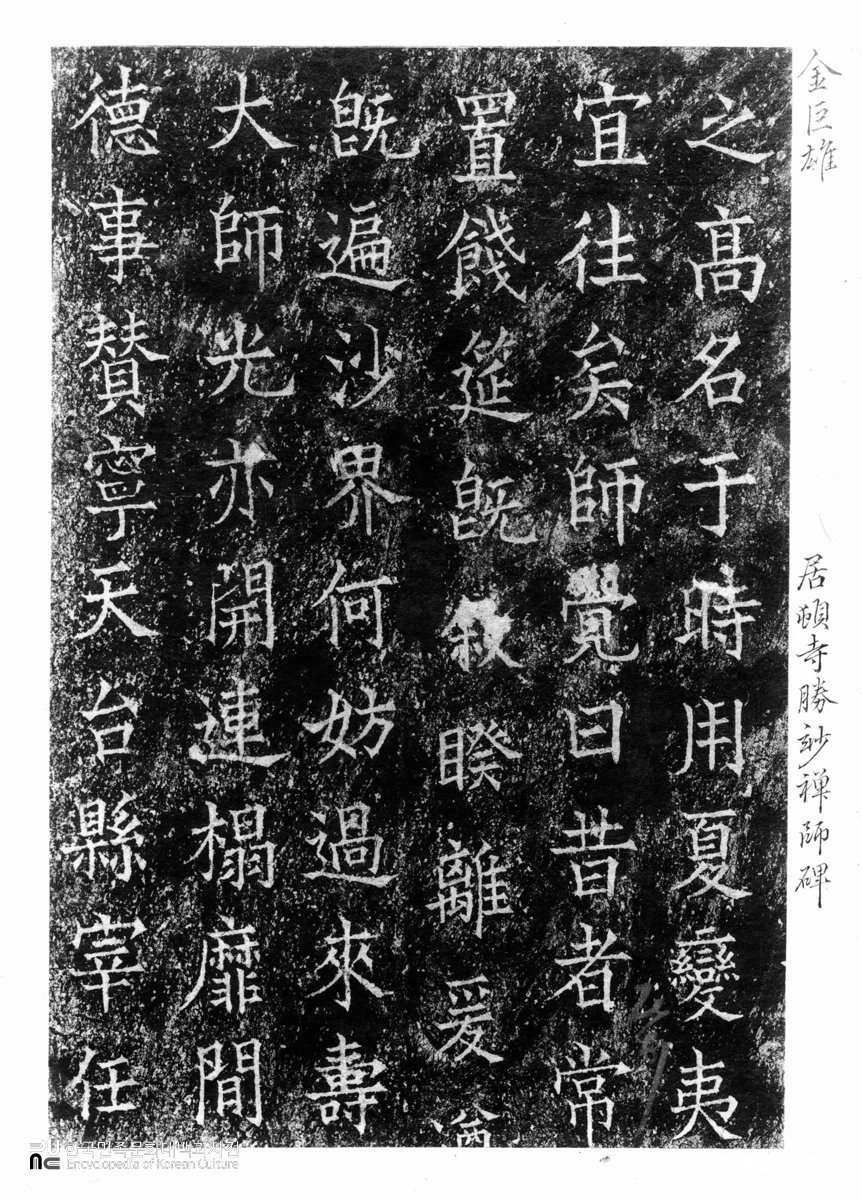 金巨雄
居頓寺勝玅禅師碑
之髙名于時用夏變夷
宜往矣師覺曰昔者常
置餞筵旣叙睽離爰
旣遍沙界何妨過來壽
大師光亦開連榻靡間
德事賛寧天台縣宰任
한국민족문화대백과사전
Encyclopedia of Korean Culture